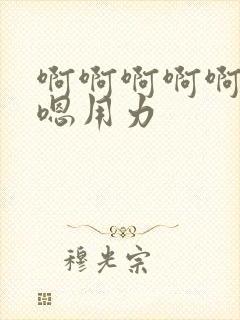 啊啊啊啊啊
嗯用力
穆光宗